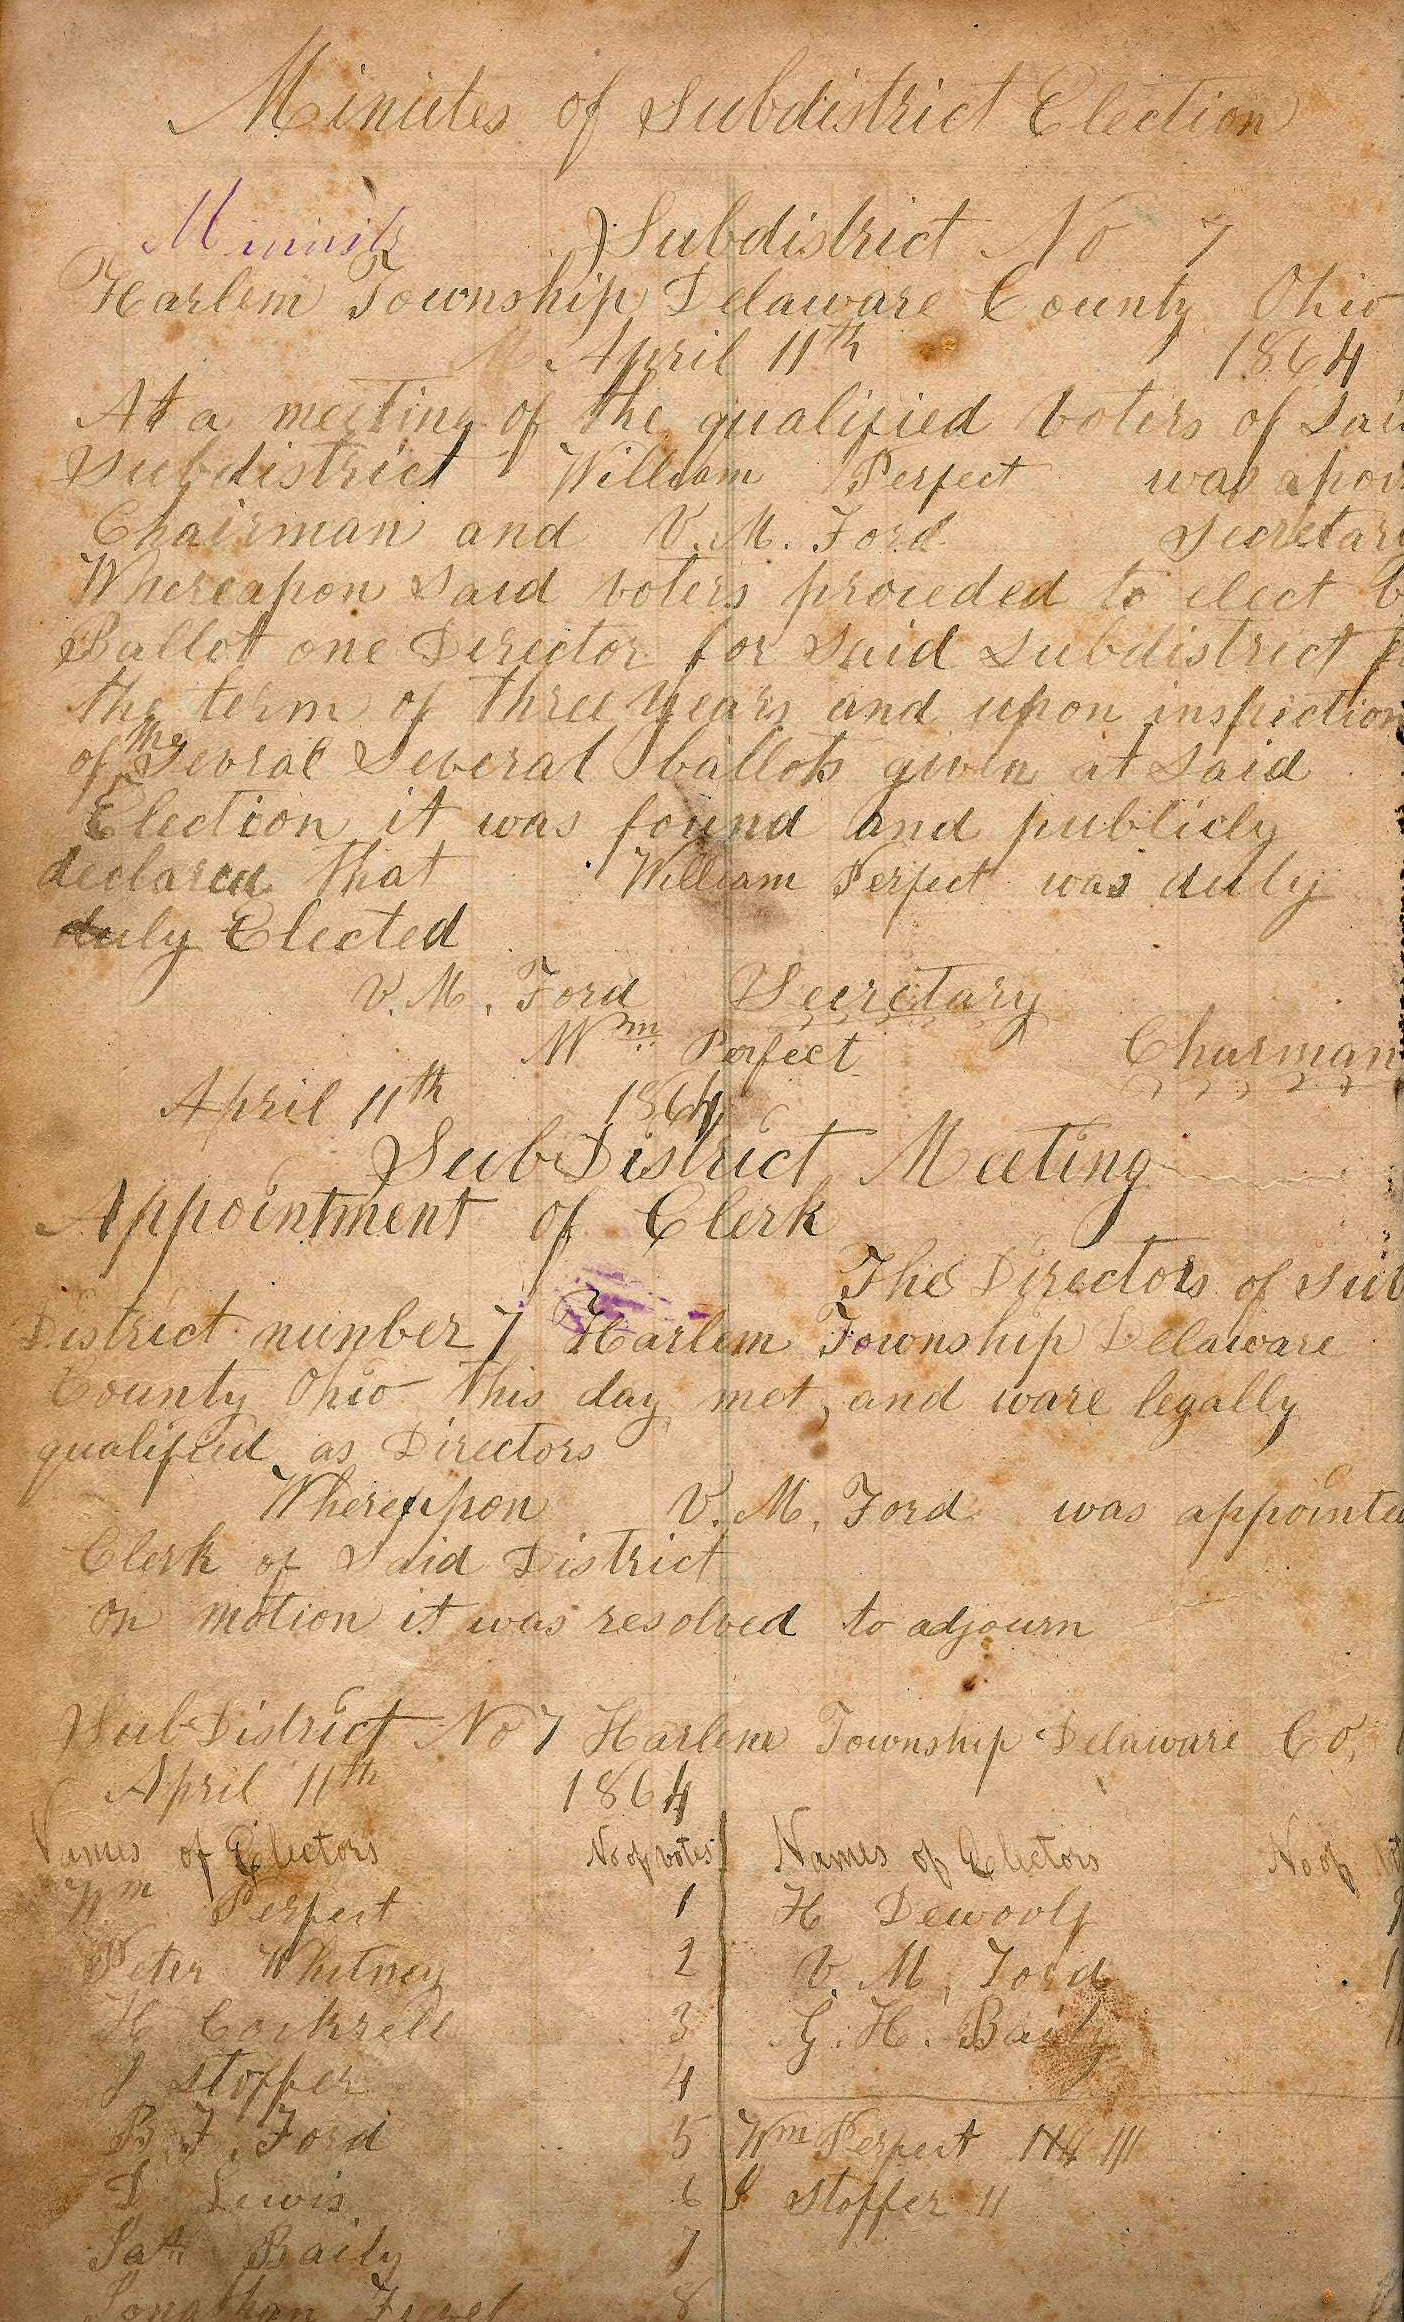 Minutes of Subdistrict Election
Subdistrict No 7
Harlem Township Delaware County Ohio
April 11th 1864
At a meeting of the qualified voters of Sai
Subdistrict William Perfect was apoi
Chairman and V. M. Ford Secretar
Whereapon Said voters proceded to elect b
Ballot one Director for Said Subdistrict
the term of three years and upon inspection
of the Sevral Several ballots given at Said
Election it was found and publicly
declared that William Perfect was duly
duly Elected
V. M. Ford Secretary
Wm Perfect Charman
April 11th 1864
SubDistrict Meeting
Appointment of Clerk
The Directors of Sub
District nunber 7 Harlem Township Delaware
County Ohio this day met and ware legally
qualified as Directors
Whereupon V. M. Ford was appointe
Clerk of Said District
on motion it was resolved to adjourn
SubDistrict No 7 Harlem Township Delaware Co,
April 11th 1864
Names of Electors No of votes Names of Electors No of
Wm Perfect 1 H Dewoolf
Peter Whitney 2 V. M. Ford
H Cockrell 3 G. H. Baily
J Stoffer 4
B. F. Ford 5 Wm Perfect
D Lewis 6 J Stoffer 11
Baily 7
Jonathan 8